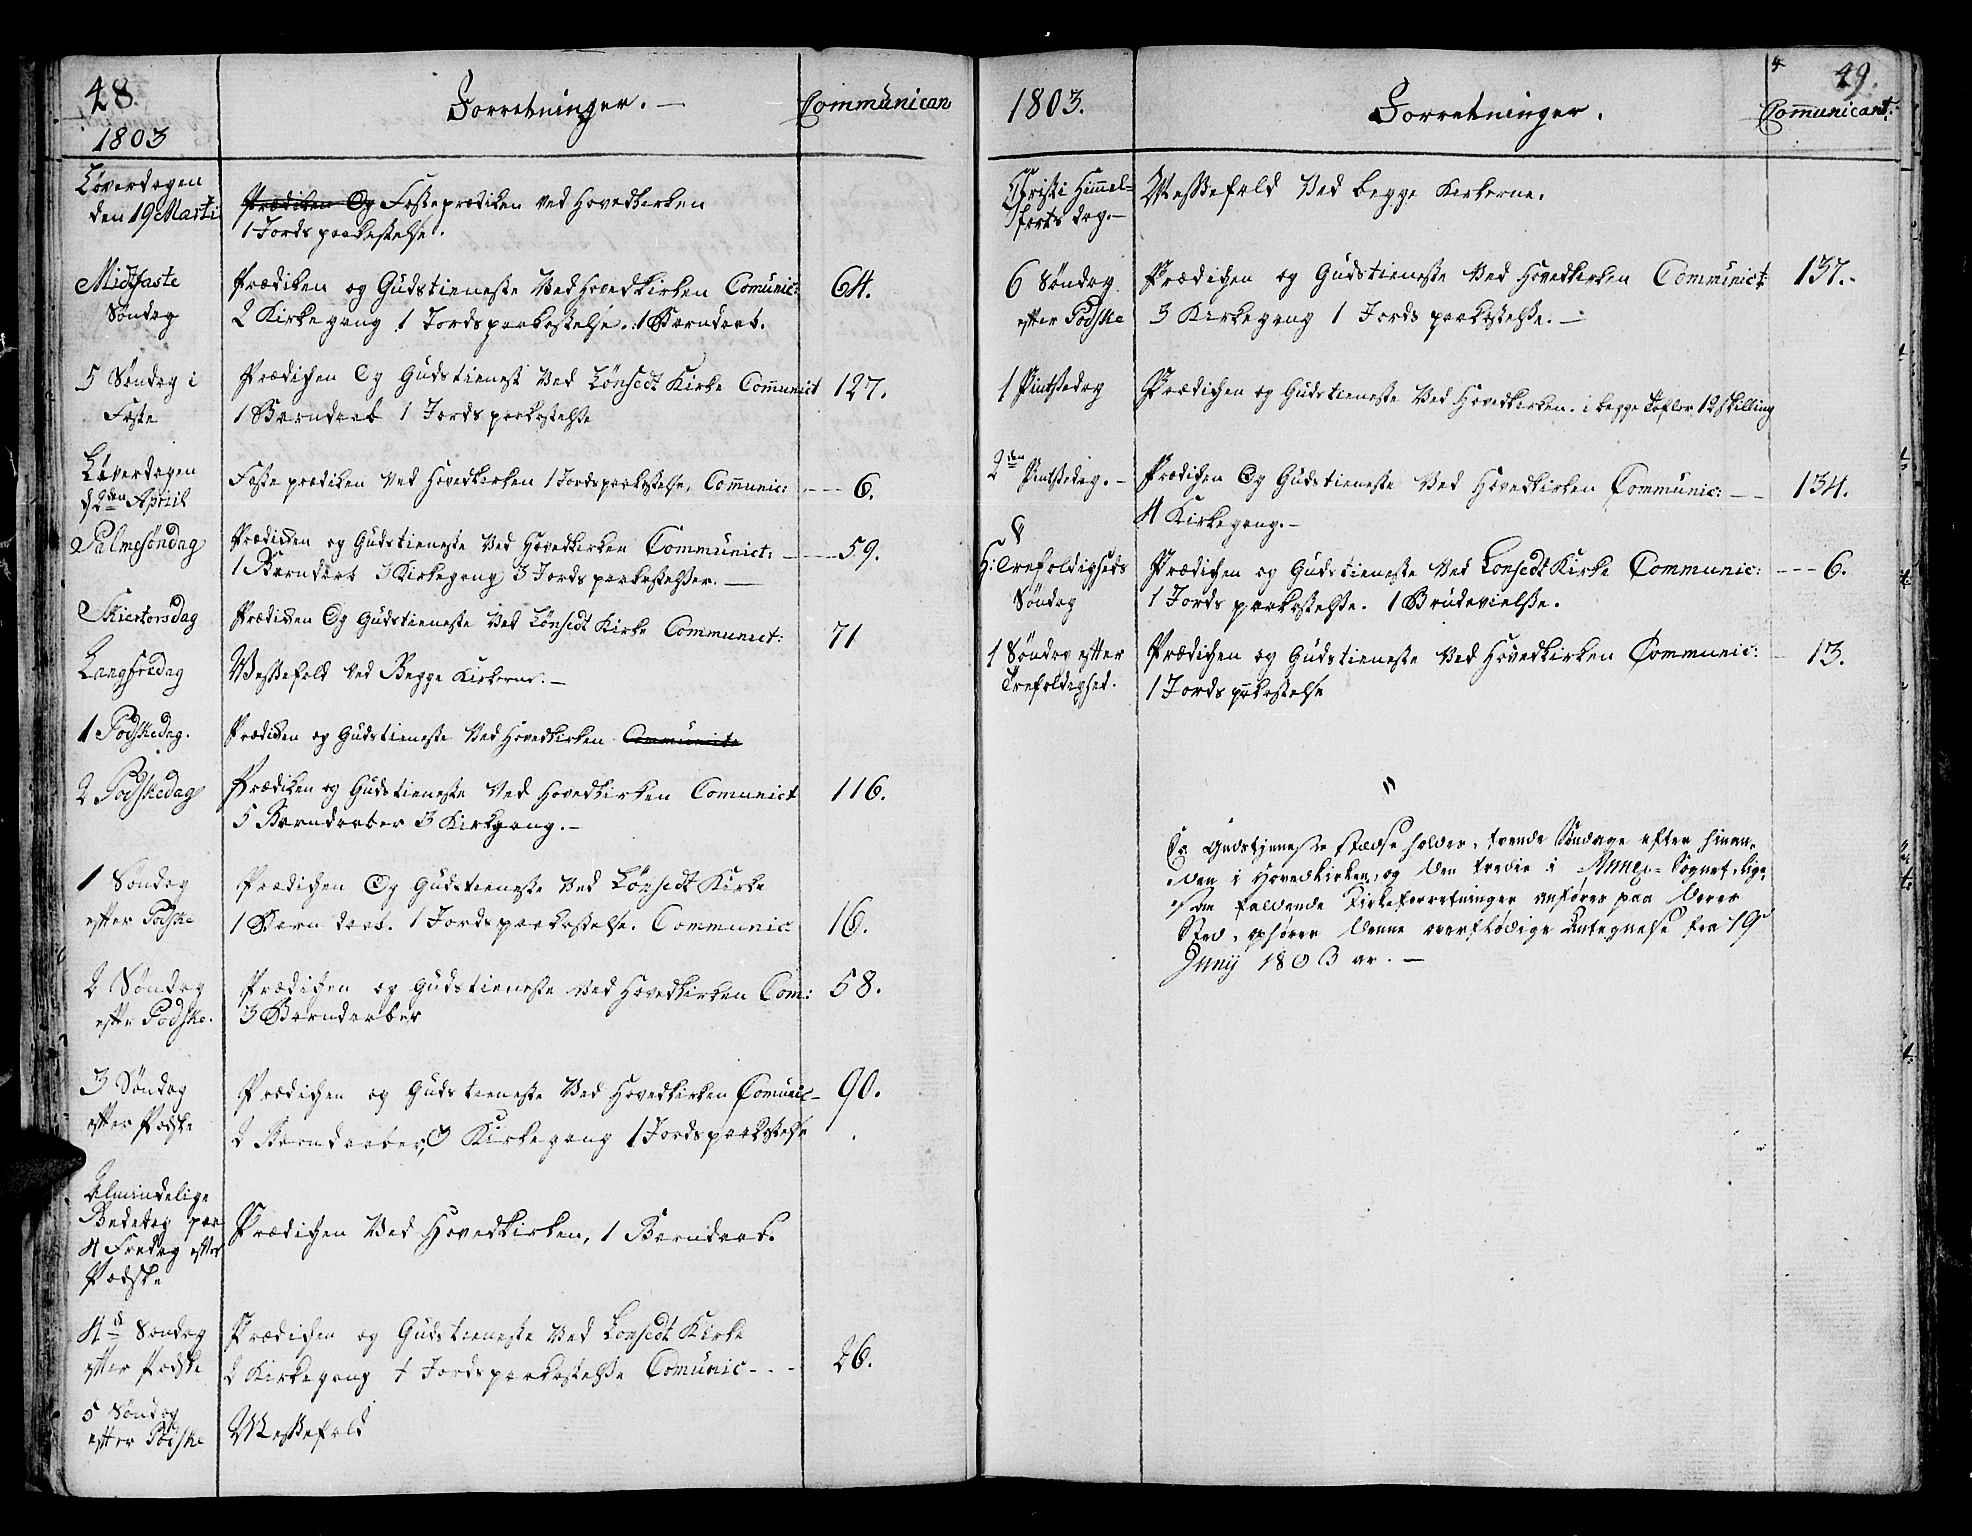 48.
1803
Forretninger. —
Communican
Løverdagen
den 19 Marti
Prædiken Og Fasteprædiken ved Hovedkirken
1 Jordspaakastelse.
Midtfaste
Søndag
Prædiken og Gudstieneste Ved Hovedkirken Comunic:
64.
2 Kirkegang 1 Jordspaakastelse. 1 Barndaab.
5 Søndag i
Faste
Prædichen Og Gudstienest Ved Lønsedt Kirke Comunict
127.
1 Barndaab 1 Jordspaakastelse
Løverdagen
d 2den April
Faste prædiken ved Hovedkirken 1 Jordspaakastelse, Comunic: - - -
6.
Palmesøndag
Prædicken og Gudstieneste Ved Hovedkirken Communict: -
59.
1 Barndaab 3 Kirkegang 3 Jordspaakastelser. —
Skiertorsdag
Prædicken Og Gudstieneste Ved Lønsedt Kirke Communict:
71
Langfredag
Messefald ved Begge Kirkerne. —
1 Podskedag.
Prædicken og Gudstieneste Ved Hovedkirken Communicte
2 Podskedag
Prædiken og Gudstieneste Ved Hovedkirken Comunict
116.
5 Barndaaber 3 Kirkgang. —
1 Søndag
efter Podske
Prædichen Og Gudstieneste Ved Lønsedt Kirke
1 Barn daab. 1 Jordspaakastelse. Communic
16.
2 Søndag
efte Podske.
Prædichen og Gudstieneste ved Hovedkirken Com:
58.
3 Barndaaber
3 Søndag
efter Podske
Prædichen og Gudstieneste Ved Hovedkirken Comunic -
90.
2 Barndaaber, 3 Kirkegang 1 Jordspaakastelse
Almindelige
Bededag paa
4 Fredag efter
Podske
Prædichen Ved Hovedkirken, 1 Barndaab.
4d Søndag
efter Podske
Prædichen og Gudstieneste Ved Lonsedt Kirke
2 Kirkegang 1 Jordspaakastelse Comunic - - -
26.
5 Søndag
efter Podske
Messefald
49.
1803.
Forretninger.
Comunicant:
Christi Himmel=
farts dag. —
Messefald Ved begge Kirkerne.
6 Søndag
efter Podske
Prædichen og Gudstieneste Ved Hovedkirken Communict:
137. -
3 Kirkegang 1 Jords paakastelse. —
1 Pintsedag
Prædichen og Gudstieneste Ved Hovedkirken. i begge Tafler 12 skilling
2den Pintsedag. —
Prædichen Og Gudstieneste Ved Hovedkirken Communic: - -
134.
4 Kirkegang. —
H: Trefoldigheds
Søndag
Prædichen og Gudstieneste Ved Lonsedt Kirke Communic: - - -
6.
1 Jords paakastelse. 1 Brudevielse.
1 Søndag efter
Trefoldighed.
Prædichen og Gudstieneste Ved Hovedkirken Communic: -
13.
1 Jords paakastelse
Da Gudstjeneste stædse holdes, tvende Søndage efter hinan=
den i Hovedkirken, og den tredie i Annex= Sognet, lige=
som faldende Kirkeforretninger anføres paa deres
Stæd, ophører denne overflødige Antegnelse fra 19
Junij 1803 ar. —